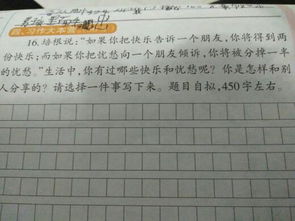 四、习作大本营
16.培根说:“如果你把快乐告诉一个朋友,你将得到两
份快乐;而如果你把忧愁向一个朋友倾诉,你将被分掉一半
的忧愁。”生活中,你有过哪些快乐和忧愁呢?你是怎样和别
人分享的?请选择一件事写下来。题目自拟,450字左右。